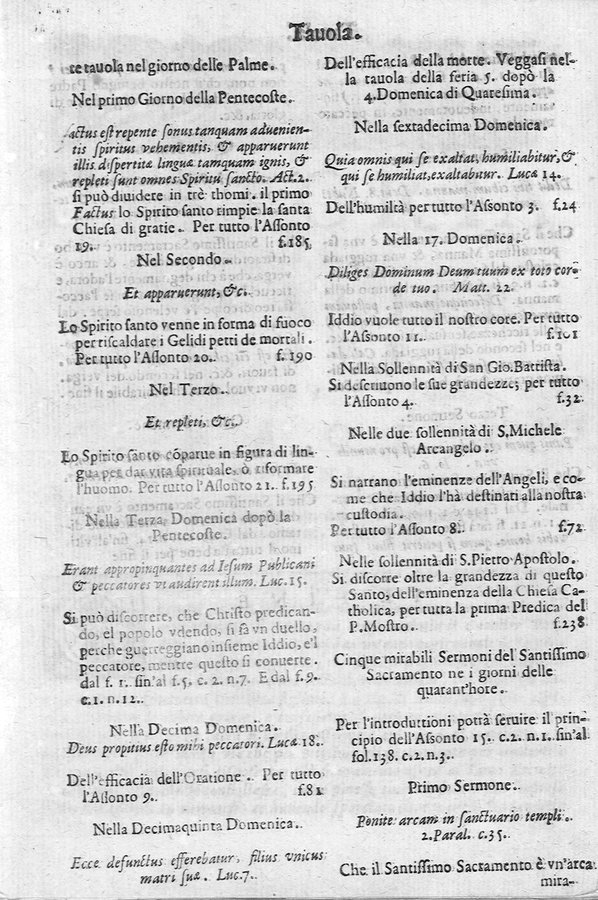 Tauola.
te tauola nel giorno delle Palme.
Nel primo Giorno della Pentecoste.
Factus est repente sonus tanquam aduenien-
tis spiritus vehementis, & apparuerunt
illis dispertitæ linguæ tamquam ignis, &
repleti sunt omnes Spiritu sancto. Act.2.
si può diuidere in trè thomi. il primo
Factus lo Spirito santo rimpie la santa
Chiesa di gratie. Per tutto l'Assonto
19. f.185.
Nel Secondo.
Et apparuerunt, &c.
Lo Spirito santo venne in forma di fuoco
per riscaldare i Gelidi petti de mortali.
Per tutto l'Assonto 20. f. 190
Nel Terzo.
Et repleti, &c.
Lo Spirito santo cōparue in figura di lin-
gua per dar vita spirituale, ò riformare
l'huomo. Per tutto l'Assonto 21. f.195
Nella Terza Domenica dopò la
Pentecoste.
Erant appropinquantes ad Iesum Publicani
& peccatores vt audirent illum. Luc.15.
Si può discorrere, che Christo predican-
do, el popolo vdendo, si fà vn duello,
perche guerreggiano insieme Iddio, e'l
peccatore, mentre questo si conuerte.
dal f. 1. sin'al f.5. c. 2. n.7. E dal f.9.
c.1. n.12.
Nella Decima Domenica.
Deus propitius esto mihi peccatori. Lucæ 18.
Dell'efficacia dell'Oratione. Per tutto
l'Assonto 9. f.81
Nella Decimaquinta Domenica.
Ecce defunctus efferebatur, filius vnicus
matri suæ. Luc.7.
Dell'efficacia della morte. Veggasi nel-
la tauola della feria 5. dopò la
4.Domenica di Quaresima.
Nella sextadecima Domenica.
Quia omnis qui se exaltat, humiliabitur, &
qui se humiliat, exaltabitur. Lucæ 14.
Dell'humiltà per tutto l'Assonto 3. f.24
Nella 17. Domenica.
Diliges Dominum Deum tuum ex toto cor-
de tuo. Matt. 22.
Iddio vuole tutto il nostro core. Per tutto
l'Assonto 11. f.101
Nella Sollennità di San Gio.Battista.
Si descriuono le sue grandezze; per tutto
l'Assonto 4. f.32.
Nelle due sollennità di S.Michele
Arcangelo.
Si narrano l'eminenze dell'Angeli, e co-
me che Iddio l'hà destinati alla nostra
custodia.
Per tutto l'Assonto 8. f.72.
Nelle sollennità di S.Pietro Apostolo.
Si discorre oltre la grandezza di questo
Santo, dell'eminenza della Chiesa Ca-
tholica, per tutta la prima Predica del
P.Mostro. f.238.
Cinque mirabili Sermoni del Santissimo
Sacramento ne i giorni delle
quarant'hore.
Per l'introductioni potrà seruire il prin-
cipio dell'Assonto 15. c.2. n.1. sin'al
fol.138. c.2. n.3.
Primo Sermone.
Ponite arcam in sanctuario templi.
2.Paral. c.35.
Che il Santissimo Sacramento è vn'arca
mira-